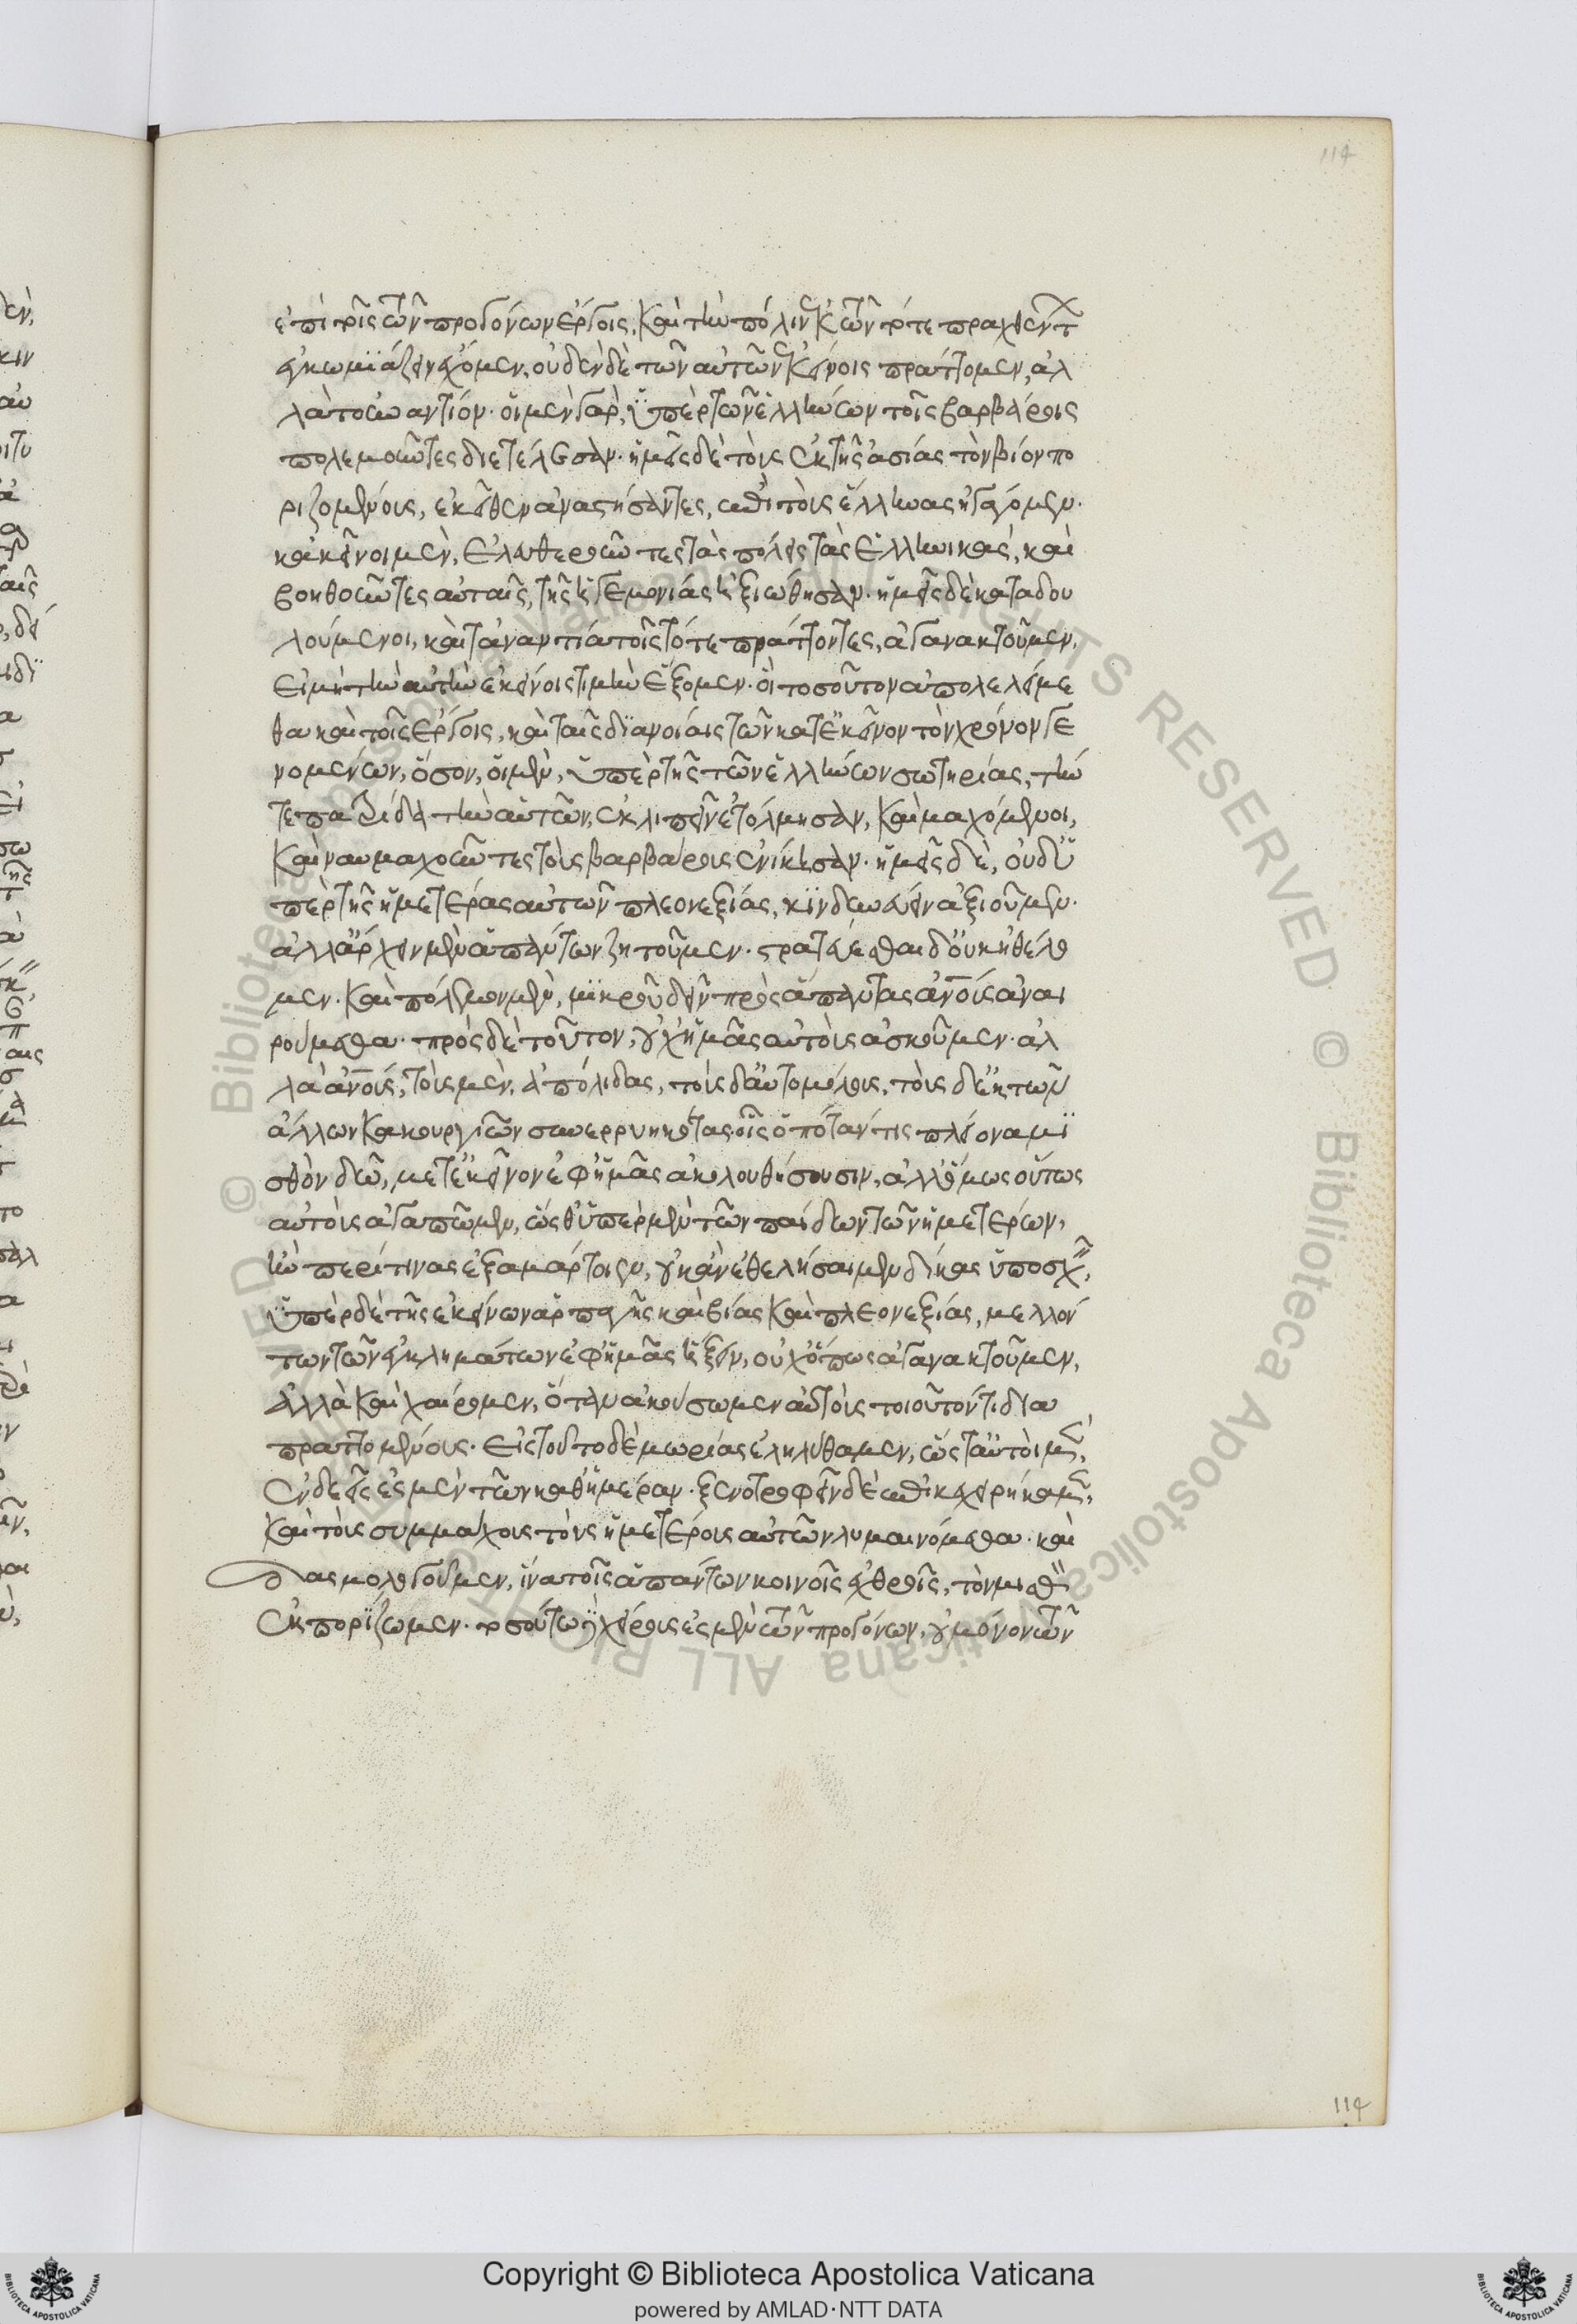 114
ἐπὶ τοῖς τῶν προγόνων ἔργοις, καὶ τὴν πόλιν ἐκ τῶν τότε πραχθέντ
ἐγκωμϊάζειν ἔχομεν, οὐδὲν δὲ τῶν αὐτῶν ἐκείνοις πράττομεν, ἀλ
λὰ τοὐναντίον· οἱ μὲν γὰρ, ὑπὲρ τῶν ἑλλήνων τοῖς βαρβάροις
πολεμοῦντες διετέλεσαν· ἡμεῖς δὲ τοὺς ἐκ τῆς ἀσίας τὸν βίον πο
ριζομένους, ἐκεῖθεν ἀναστήσαντες, ἐπὶ τοὺς ἕλληνας ἠγάγομεν·
κἀκεῖνοι μὲν, ἐλευθεροῦντες τὰς πόλεις τὰς ἑλληνικὰς, καὶ
βοηθοῦντες αὐταῖς, τῆς ἡγεμονίας ἠξιώθησαν· ἡμεῖς δὲ καταδου
λούμενοι, καὶ τἀναντία τοῖς τότε πράττοντες, ἀγανακτοῦμεν,
εἰ μὴ τὴν αὐτὴν ἐκείνοις τιμὴν ἕξομεν· οἳ τοσοῦτον ἀπολελείμε
θα καὶ τοῖς ἔργοις, καὶ ταῖς διανοίαις τῶν κατ' ἐκεῖνον τὸν χρόνον γε
νομένων, ὅσον, οἱ μὲν, ὑπὲρ τῆς τῶν ἑλλήνων σωτηρίας, τήν
τε πατρίδα τὴν αὑτῶν, ἐκλιπεῖν ἐτόλμησαν, καὶ μαχόμενοι,
καὶ ναυμαχοῦντες τοὺς βαρβάρους ἐνίκησαν· ἡμεῖς δὲ, οὐδ' ὑ
πὲρ τῆς ἡμετέρας αὐτῶν πλεονεξίας, κινδυνεύειν ἀξιοῦμεν·
ἀλλ' ἄρχειν μὲν ἁπάντων ζητοῦμεν· στρατεύεσθαι δ' οὐκ ἠθέλο
μεν· καὶ πόλεμον μὲν, μικροῦ δεῖν πρὸς ἅπαντας ἀνους ἀναι
ρούμεθα· πρὸς δὲ τοῦτον, οὐχ ἡμᾶς αὐτοὺς ἀσκοῦμεν· ἀλ
λὰ ἀνους, τοὺς μὲν, ἀπόλιδας, τοὺς δ' αὐτομόλους, τοὺς δ' ἐκ τῶν
ἄλλων κακουργιῶν συνερρυηκότας οἷς ὁπόταν τις πλείονα μι
σθὸν διδῶ, μετ' ἐκείνον ἐφ' ἡμᾶς ἀκολουθήσουσιν, ἀλλ' ὅμως οὕτως
αὐτοὺς ἀγαπῶμεν, ὥσθ' ὑπὲρ μὲν τῶν παίδων τῶν ἡμετέρων,
ἢν περί τινας ἐξαμάρτοιεν, οὐκ ἂν ἐθελήσαιμεν δίκας ὑποσχ
ὑπὲρ δὲ τῆς ἐκείνων ἁρπαγῆς καὶ βίας καὶ πλεονεξίας, μελλόν
των τῶν ἐγκλημάτων ἐφ' ἡμᾶς ἥξειν, οὐχ ὅπως ἀγανακτοῦμεν,
ἀλλὰ καὶ χαίρομεν, ὅταν ἀκούσωμεν αὐτοὺς τοιοῦτόν τι δια
πραττομένους· εἰς τοῦτο δὲ μωρίας ἐληλύθαμεν, ὥστ' αὐτοὶ μὲν,
ἐνδεεῖς ἐσμὲν τῶν καθ' ἡμέραν· ξενοτροφεῖν δὲ ἐπικεχειρήκαμεν,
καὶ τοὺς συμμάχους τοὺς ἡμετέρους αὐτῶν λυμαινόμεθα· καὶ
δασμολογοῦμεν, ἵνα τοῖς ἁπάντων κοινοῖς ἐχθροῖς, τὸν μισθὸν
ἐκπορίζωμεν· τοσούτῳ δὲ χείρους ἐσμὲν τῶν προγόνων, οὐ μόνον τῶν
114